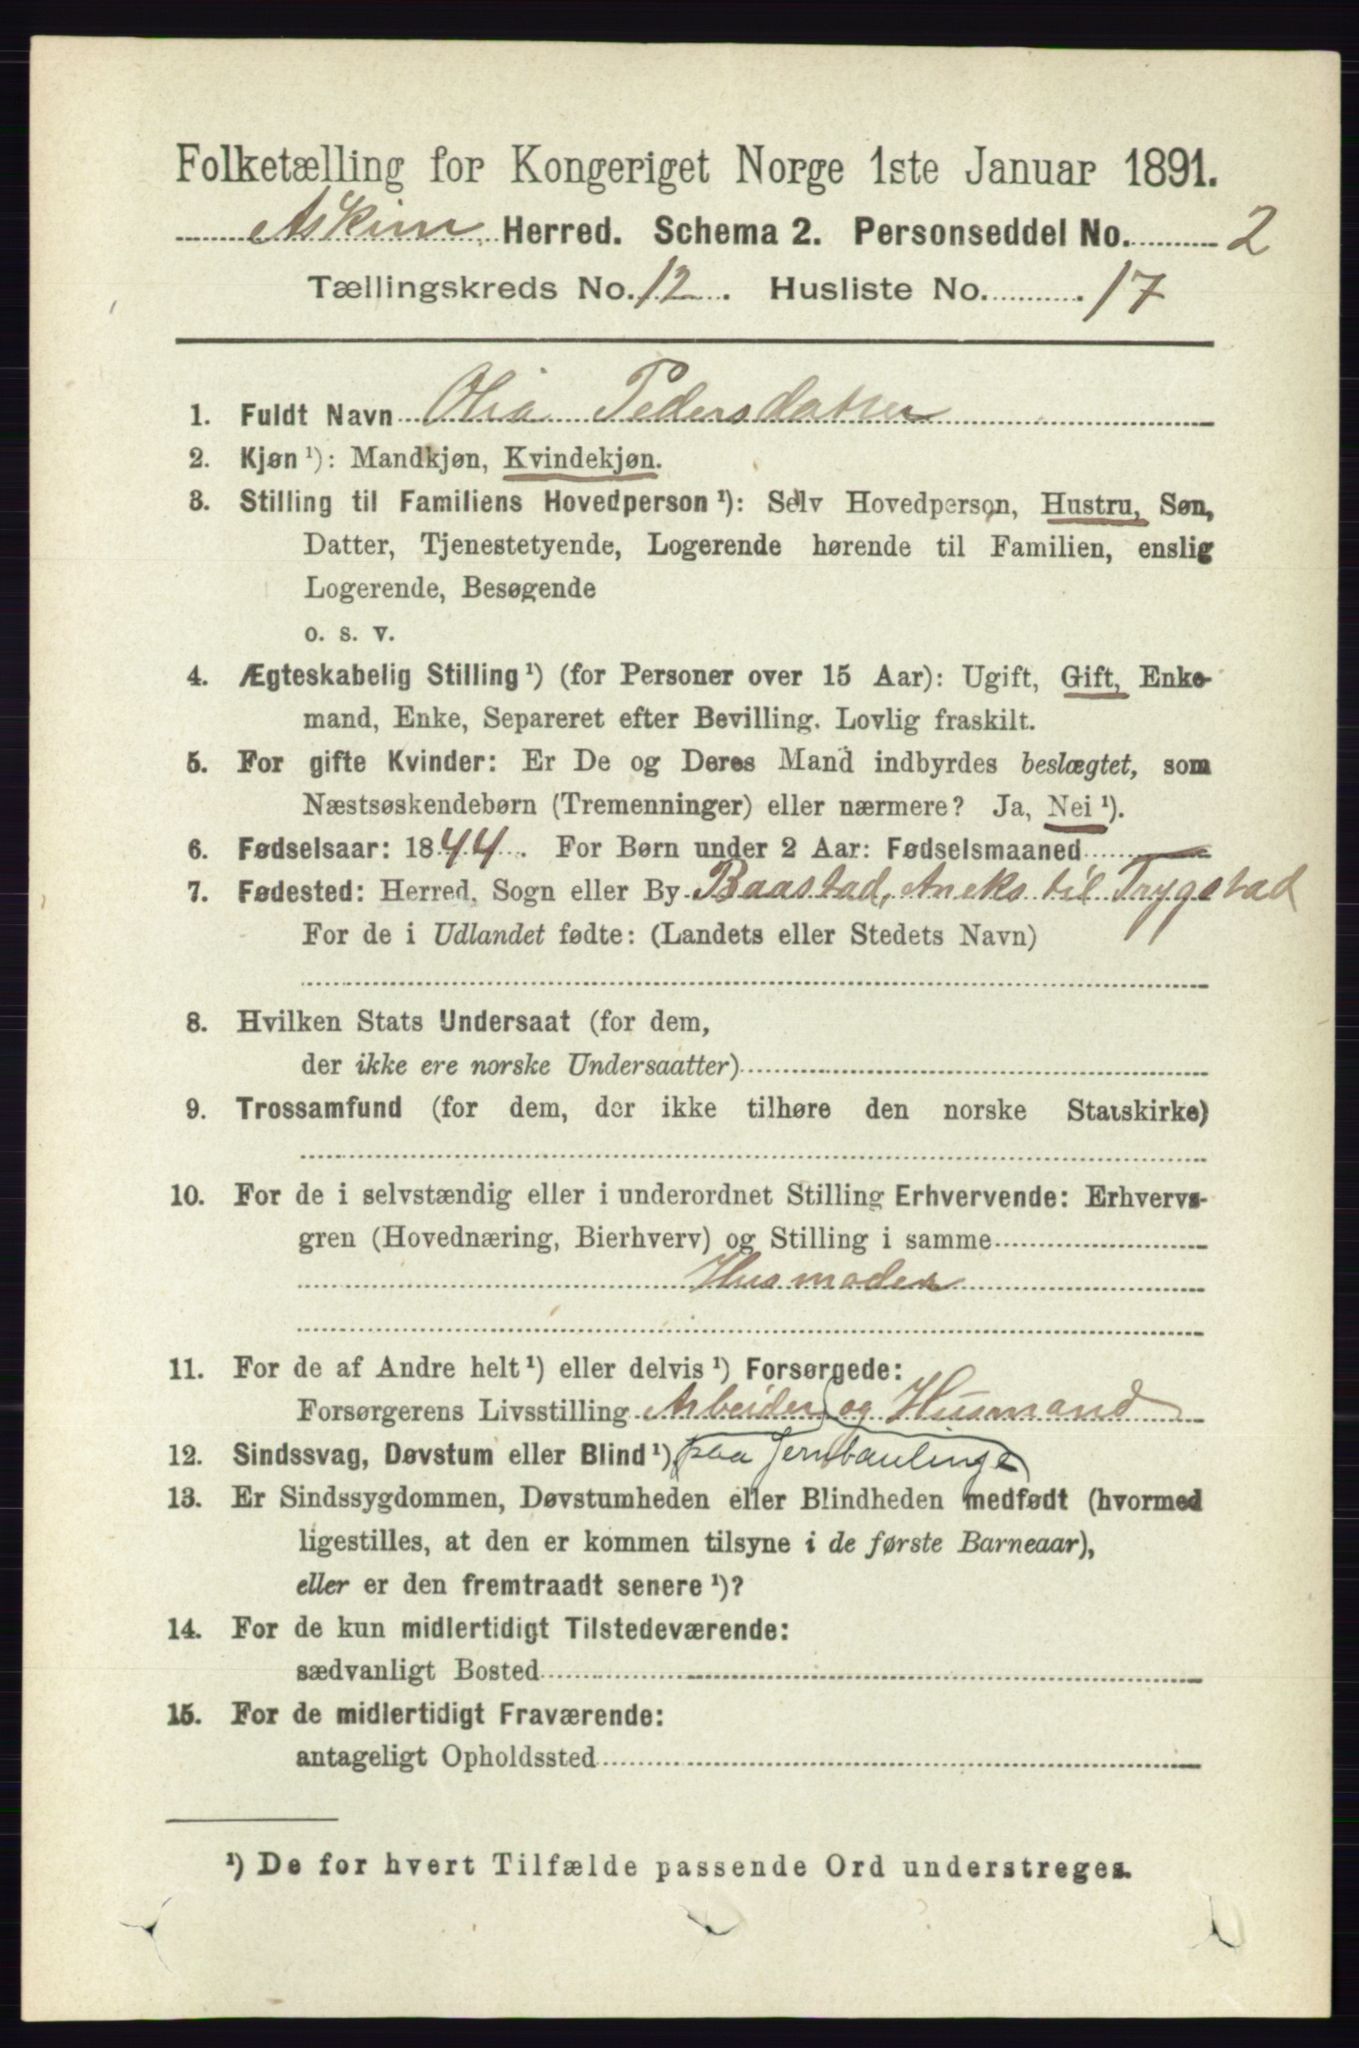 Folketælling for Kongeriget Norge 1ste Januar 1891.
Askim Herred. Schema 2. Personseddel No. 2
Tællingskreds No. 12. Husliste No. 17
1. Fuldt Navn Olia Pedersdatter
2. Kjøn ¹): Mandkjøn, Kvindekjøn.
3. Stilling til Familiens Hovedperson ¹): Selv Hovedperson, Hustru, Søn,
Datter, Tjenestetyende, Logerende hørende til Familien, enslig
Logerende, Besøgende
o. s. v.
4. Ægteskabelig Stilling ¹) (for Personer over 15 Aar): Ugift, Gift, Enke-
mand, Enke, Separeret efter Bevilling. Lovlig fraskilt.
5. For gifte Kvinder: Er De og Deres Mand indbyrdes beslægtet, som
Næstsøskendebørn (Tremenninger) eller nærmere? Ja, Nei ¹).
6. Fødselsaar: 1844. For Børn under 2 Aar: Fødselsmaaned
7. Fødested: Herred, Sogn eller By Baastad, Aneks til Trygstad
For de i Udlandet fødte: (Landets eller Stedets Navn)
8. Hvilken Stats Undersaat (for dem,
der ikke ere norske Undersaatter)
9. Trossamfund (for dem, der ikke tilhøre den norske Statskirke)
10. For de i selvstændig eller i underordnet Stilling Erhvervende: Erhvervs-
gren (Hovednæring, Bierhverv) og Stilling i samme
Husmoder
11. For de af Andre helt ¹) eller delvis ¹) Forsørgede:
Forsørgerens Livsstilling Arbeider og Husmand
12. Sindssvag, Døvstum eller Blind ¹) paa Jernbanlinge
13. Er Sindssygdommen, Døvstumheden eller Blindheden medfødt (hvormed
ligestilles, at den er kommen tilsyne i de første Barneaar),
eller er den fremtraadt senere ¹)?
14. For de kun midlertidigt Tilstedeværende:
sædvanligt Bosted
15. For de midlertidigt Fraværende:
antageligt Opholdssted
¹) De for hvert Tilfælde passende Ord understreges.